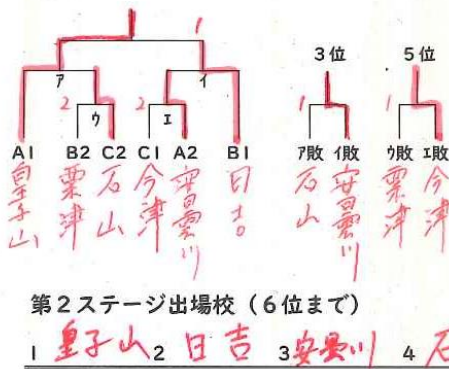 1
3位 5位
ア イ
2 ウ 2 エ 1 1
A1 B2 C2 C1 A2 B1 ア敗 イ敗 ウ敗 エ敗
皇子山 粟津 石山 今津 安曇川 日吉 石山 安曇川 粟津 今津
第2ステージ出場校（6位まで）
1 皇子山 2 日吉 3 安曇川 4 石